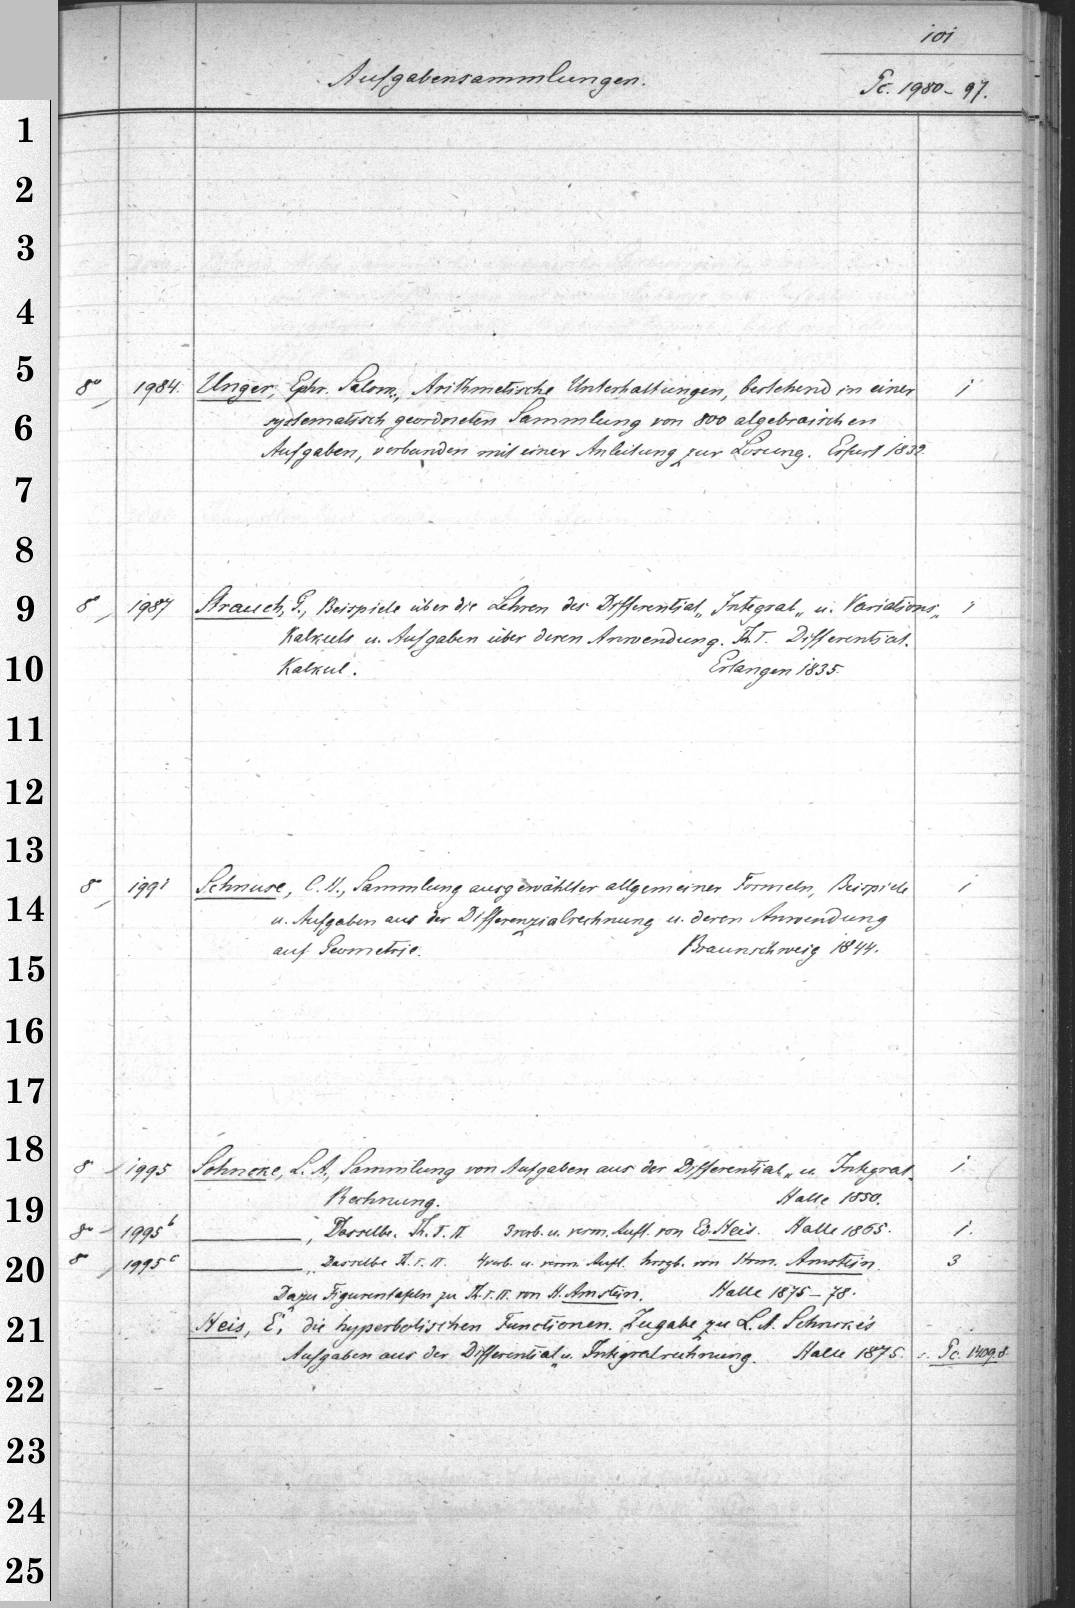 101
Aufgabensammlungen.
Gc. 1980-97.
1
2
3
4
5
8° 1984. Unger, Ephr. Salom., Arithmetische Unterhaltungen, bestehend in einer 1
systematisch geordneten Sammlung von 800 algebraischen
6
Aufgaben, verbunden mit einer Anleitung zur Lösung. Erfurt 1832.
7
8
9
8° 1987 Strauch, G., Beispiele über die Lehren des Differential„ Integral„ u. Variations„ 1
Kalkuls u. Aufgaben über deren Anwendung. Th. I. Differential.
10
Kalkul. Erlangen 1835.
11
12
13
8° 1991 Schnuse, C. H., Sammlung ausgewählter allgemeiner Formeln, Beispiele 1
14
u. Aufgaben aus der Differenzialrechnung u. deren Anwendung
auf Geometrie. Braunschweig 1844.
15
16
17
18
8° 1995 Sohncke, L. A., Sammlung von Aufgaben aus der Differential„ u. Integral„ 1
19
Rechnung. Halle 1850.
8° 1995 b ———, Dasselbe. Th. I. II 3 verb. u. verm. Aufl. von Ed. Heis. Halle 1865. 1.
20
8° 1995 c ———„ Dasselbe Th. I. II. 4 verb. u. verm. Aufl. hrsgb. von Herm. Amstein. 3
Dazu Figurentafeln zu Th. I. II. von H. Amstein. Halle 1875-78.
21
Heis, E., die hyperbolischen Functionen. Zugabe zu L. A. Sohncke's
Aufgaben aus der Differential„ u. Integralrechnung. Halle 1875. s. Gc.
22
23
24
25